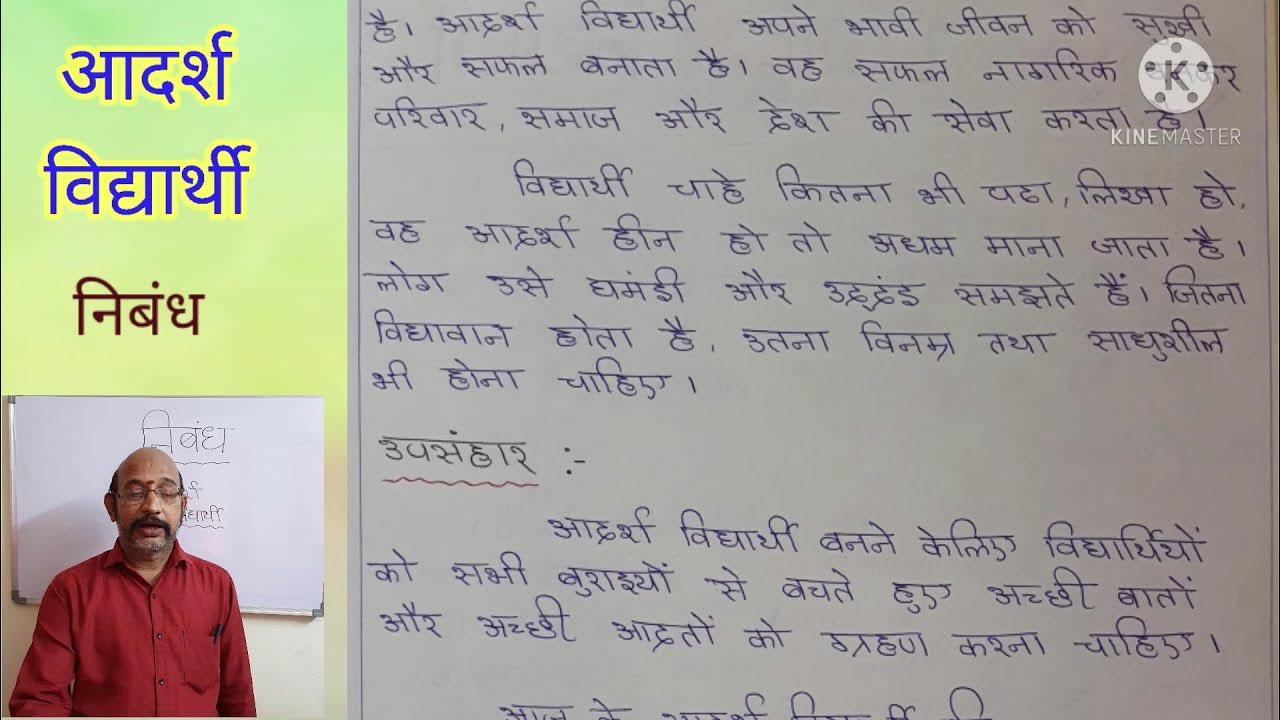 आदर्श
विद्यार्थी
निबंध
निबंध
है। आदर्श विद्यार्थी अपने भावी जीवन को सुखी
और सफल बनाता है। वह सफल नागरिक
परिवार, समाज और देश की सेवा करता है।
विद्यार्थी चाहे कितना भी पढा, लिखा हो,
वह आदर्श हीन हो तो अधम माना जाता है।
लोग उसे घमंडी और उद्दंड समझते हैं। जितना
विद्यावान होता है, उतना विनम्र तथा साधुशील
भी होना चाहिए।
उपसंहार :-
आदर्श विद्यार्थी बनने केलिए विद्यार्थियों
को सभी बुराइयों से बचते हुए अच्छी बातों
और अच्छी आदतों को ग्रहण करना चाहिए।
आज के आदर्श विद्यार्थी ही
K
KINEMASTER